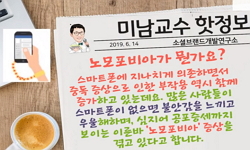 미남교수 핫정보
2019. 6. 14
소셜브랜드개발연구소
노모포비아가 뭔가요?
스마트폰에 지나치게 의존하면서
중독 증상으로 인한 부작용 역시 함께
증가하고 있는데요. 많은 사람들이
스마트폰이 없으면 불안감을 느끼고
우울해하며, 심지어 공포증세까지
보이는 이른바 '노모포비아' 증상을
겪고 있다고 합니다.